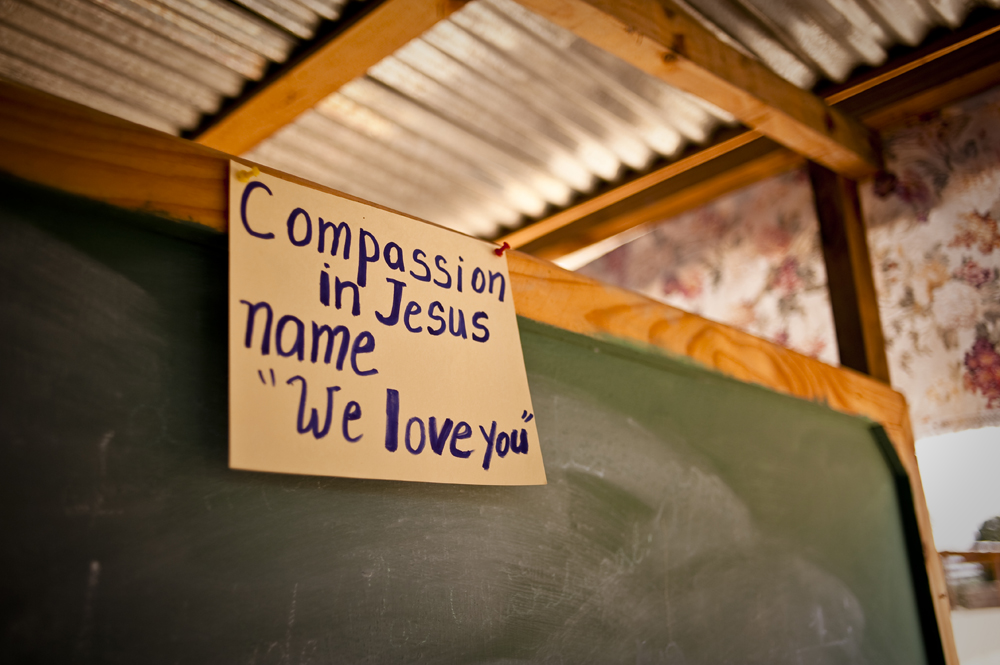 Compassion
in Jesus
name
"We love you"